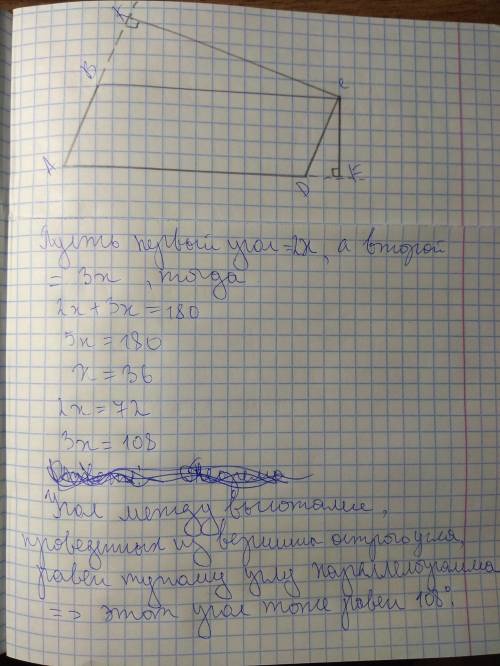 K
B
C
A
D
F
Пусть первый угол = 2x, а второй
= 3x, тогда
2x + 3x = 180
5x = 180
x = 36
2x = 72
3x = 108
Угол между высотами,
проведенных из вершины острого угла,
равен тупому углу параллелограмма
=> этот угол тоже равен 108°.